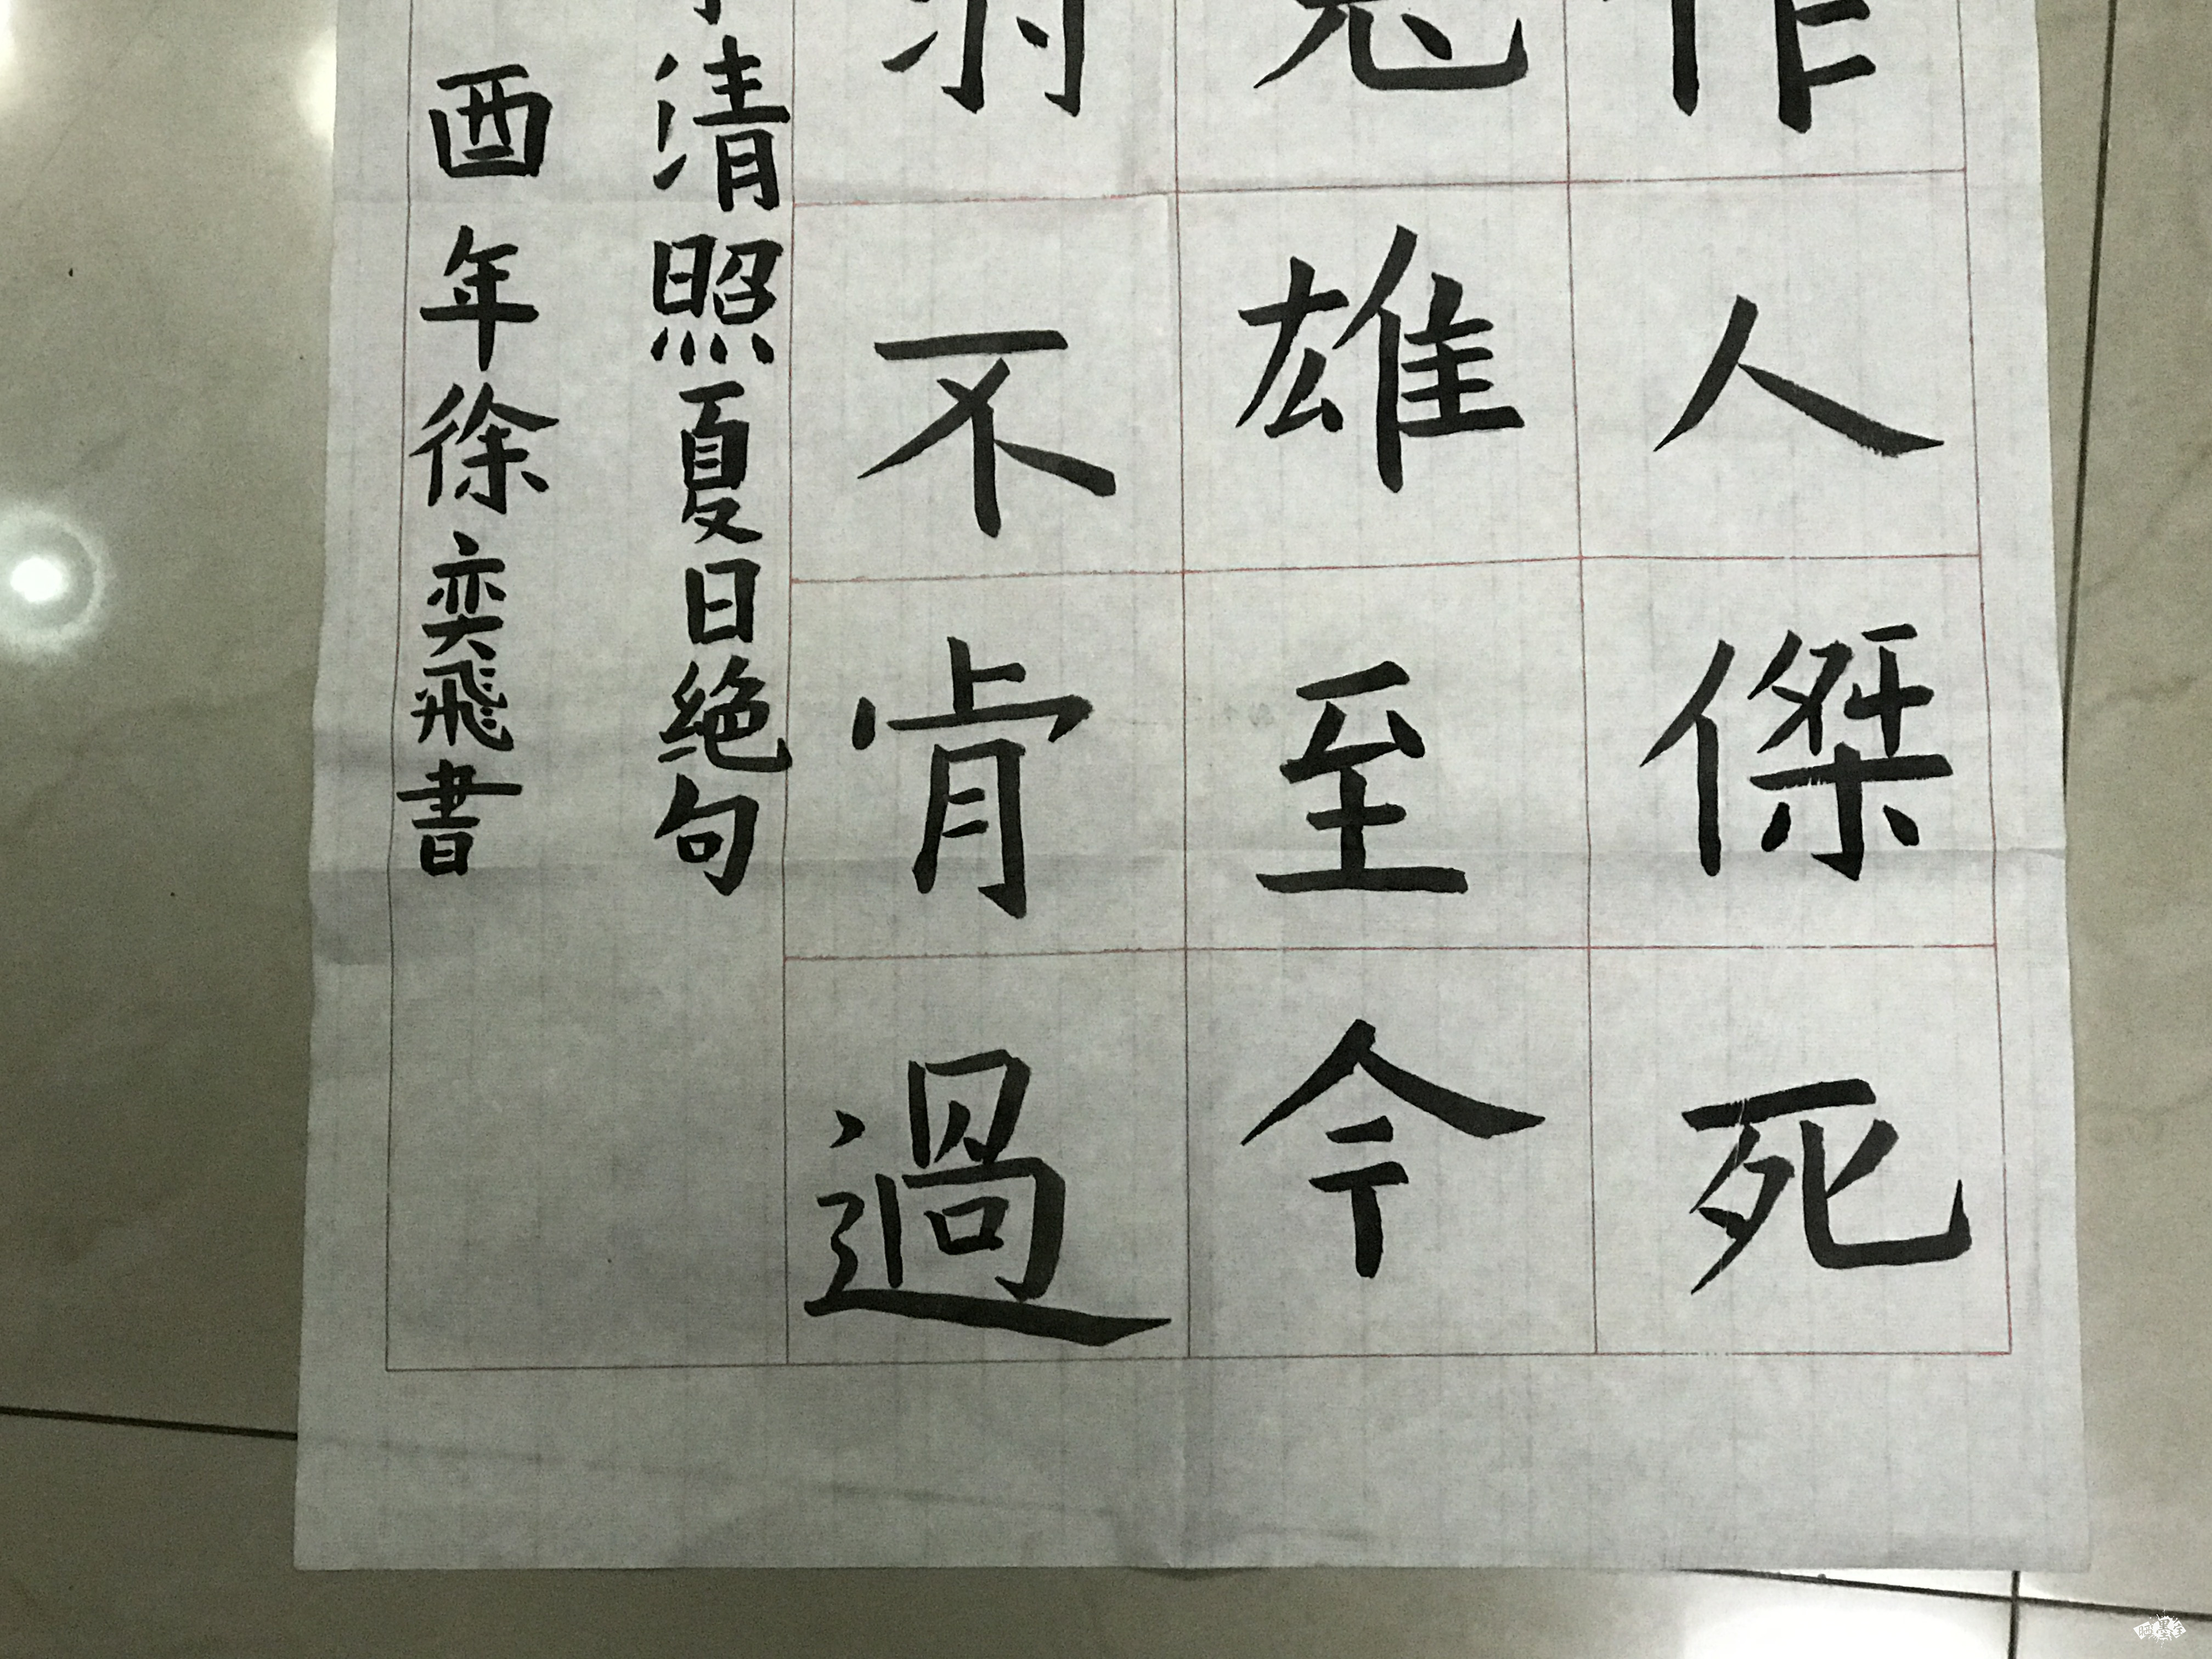 作人傑死
鬼雄至今
不肯過
清照夏日绝句
酉年徐奕飛書